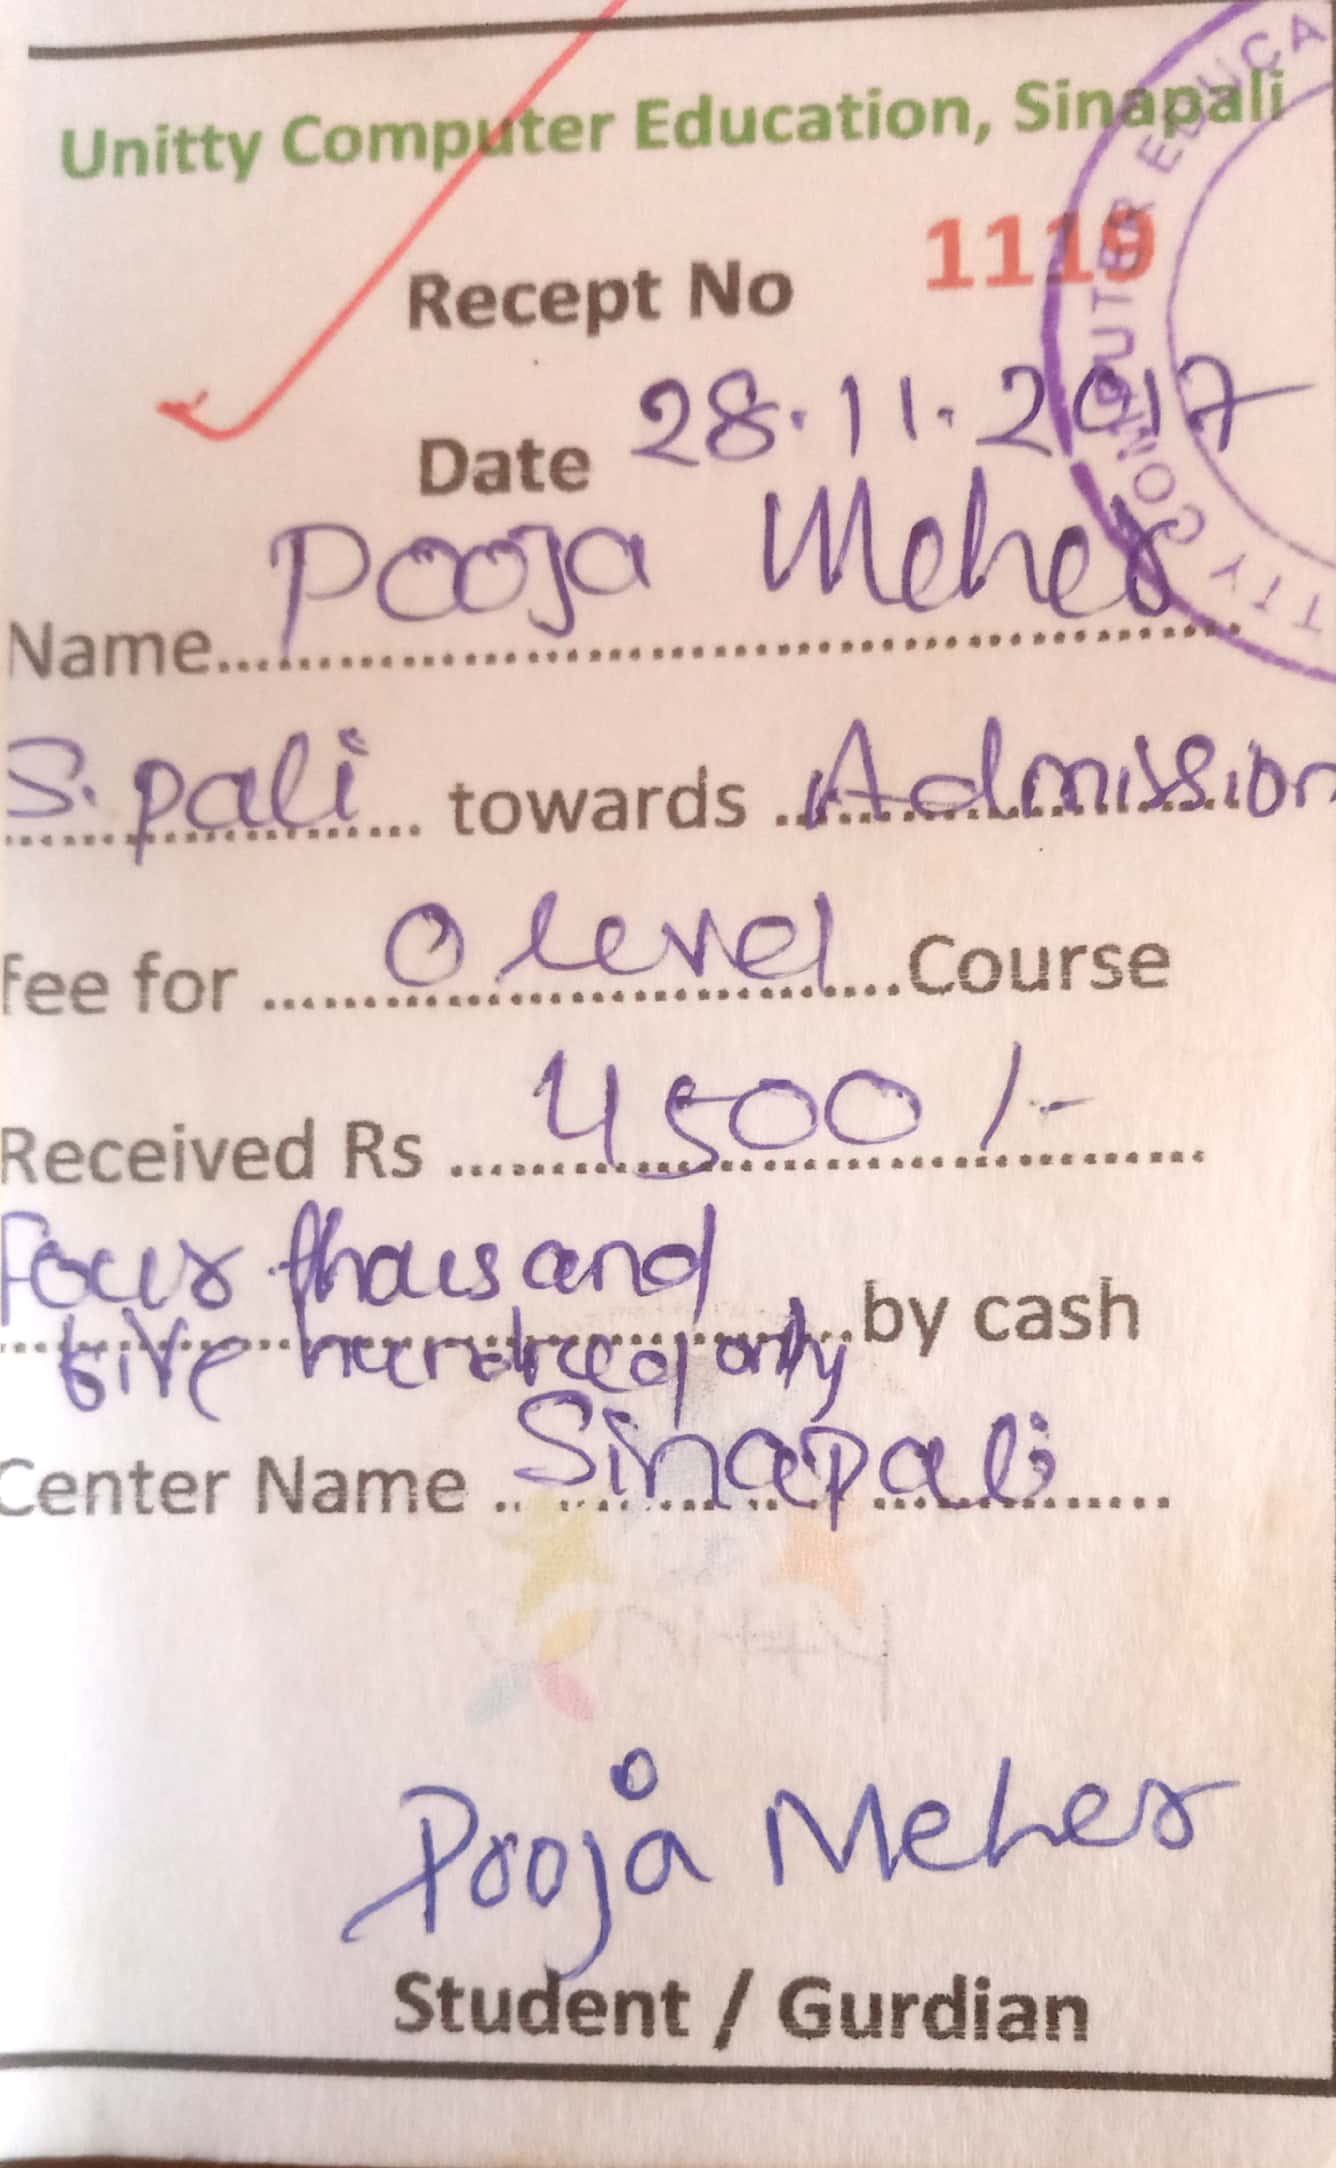 Unitty Computer Education, Sinapali
Recept No 1119
Date 28.11.2017
Name Pooja Meher
S. pali towards Admission
fee for O level Course
Received Rs 4500/-
Four thousand
five hundred only by cash
Center Name Sinapali
Pooja Meher
Student / Gurdian
TTY COMPUTER EDUCA